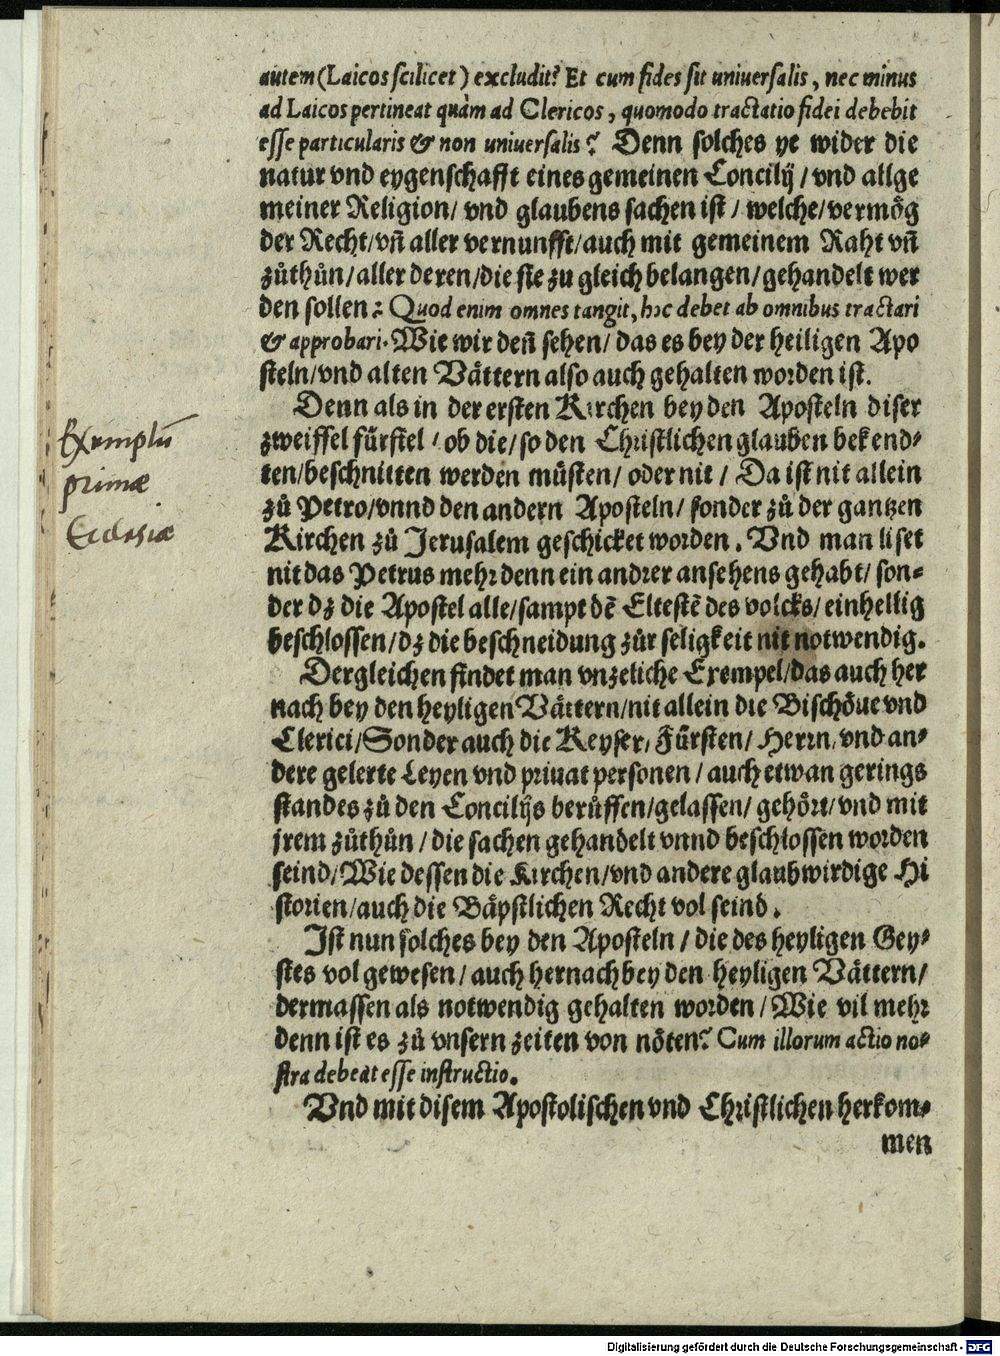 autem (Laicos scilicet) excludit? Et cum fides sit uniuersalis, nec minus
ad Laicos pertineat quàm ad Clericos, quomodo tractatio fidei debebit
esse particularis & non uniuersalis? Denn solches ye wider die
natur vnd eygenschafft eines gemeinen Concilij / vnd allge
meiner Religion / vnd glaubens sachen ist / welche / vermög
der Recht / vñ aller vernunfft / auch mit gemeinem Raht vñ
zůthůn / aller deren / die sie zu gleich belangen / gehandelt wer
den sollen: Quod enim omnes tangit, hoc debet ab omnibus tractari
& approbari. Wie wir deñ sehen / das es bey der heiligen Apo
steln / vnd alten Vättern also auch gehalten worden ist.
Denn als in der ersten Kirchen bey den Aposteln diser
zweiffel fürfiel / ob die / so den Christlichen glauben bekend⸗
ten / beschnitten werden müsten / oder nit / Da ist nit allein
zů Petro / vnnd den andern Aposteln / sonder zů der gantzen
Kirchen zů Jerusalem geschicket worden. Vnd man liset
nit das Petrus mehr denn ein andrer ansehens gehabt / son⸗
der dz die Apostel alle / sampt dē Eltestē des volcks / einhellig
beschlossen / dz die beschneidung zůr seligkeit nit notwendig.
Dergleichen findet man vnzeliche Exempel / das auch her
nach bey den heyligen Vättern / nit allein die Bischöue vnd
Clerici / Sonder auch die Keyser / Fürsten / Herrn / vnd an⸗
dere gelerte Leyen vnd priuat personen / auch etwan gerings
standes zů den Concilijs berůffen / gelassen / gehört / vnd mit
jrem zůthůn / die sachen gehandelt vnnd beschlossen worden
seind / Wie dessen die Kirchen / vnd andere glaubwirdige Hi
storien / auch die Bäpstlichen Recht vol seind.
Ist nun solches bey den Aposteln / die des heyligen Gey⸗
stes vol gewesen / auch hernach bey den heyligen Vättern /
dermassen als notwendig gehalten worden / Wie vil mehr
denn ist es zů vnsern zeiten von nöten? Cum illorum actio no⸗
stra debeat esse instructio.
Vnd mit disem Apostolischen vnd Christlichen herkom⸗
men
Exemplū
primæ
Ecclesiæ
Digitalisierung gefördert durch die Deutsche Forschungsgemeinschaft - DFG